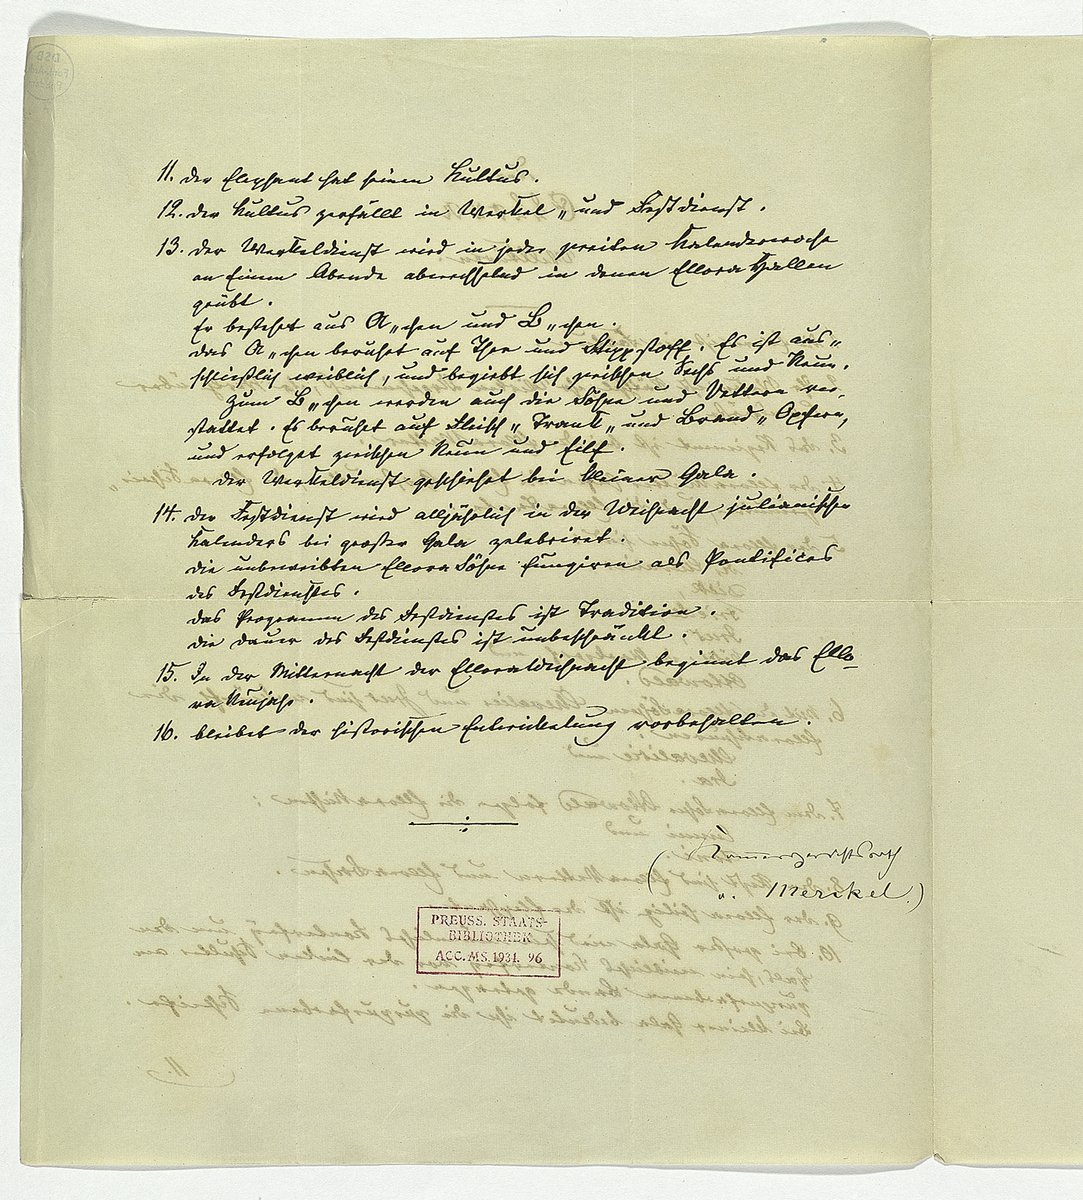 11. der Elephant hat seinen Kultus.
12. der Kultus zerfällt in Werkel„ und Festdienst.
13. der Werkeldienst wird in jeder zweiten Kalenderwoche
an Einem Abende abwechselnd in denen Ellora Hallen
geübt.
Er bestehet aus A„chen und B„chen.
das A„chen beruhet auf Thee und Stippstoff. Es ist aus„
schließlich weiblich, und begiebt sich zwischen Sechs und Neun.
Zum B„chen werden auch die Söhne und Vettern ver„
stattet. Es beruhet auf Fleisch„ Trank„ und Brand„ Opfern,
und erfolget zwischen Neun und Eilf.
der Werkeldienst geschiehet bei kleiner Gala.
14. der Festdienst wird alljährlich in der Weihnacht julianischen
Kalenders bei großer Gala zelebriret.
die unbeweibten Ellora Söhne fungiren als Pontifices
des Festdienstes.
das Programm des Festdienstes ist Tradition.
die Dauer des Festdienstes ist unbeschränkt.
15. In der Mitternacht der Elloraweihnacht beginnt das Ello-
ra Neujahr.
16. bleibet der historischen Entwickelung vorbehalten.
(Kammergerichtsrath
v. Merckel.)
PREUSS. STAATS-
BIBLIOTHEK
ACC. MS. 1931. 96